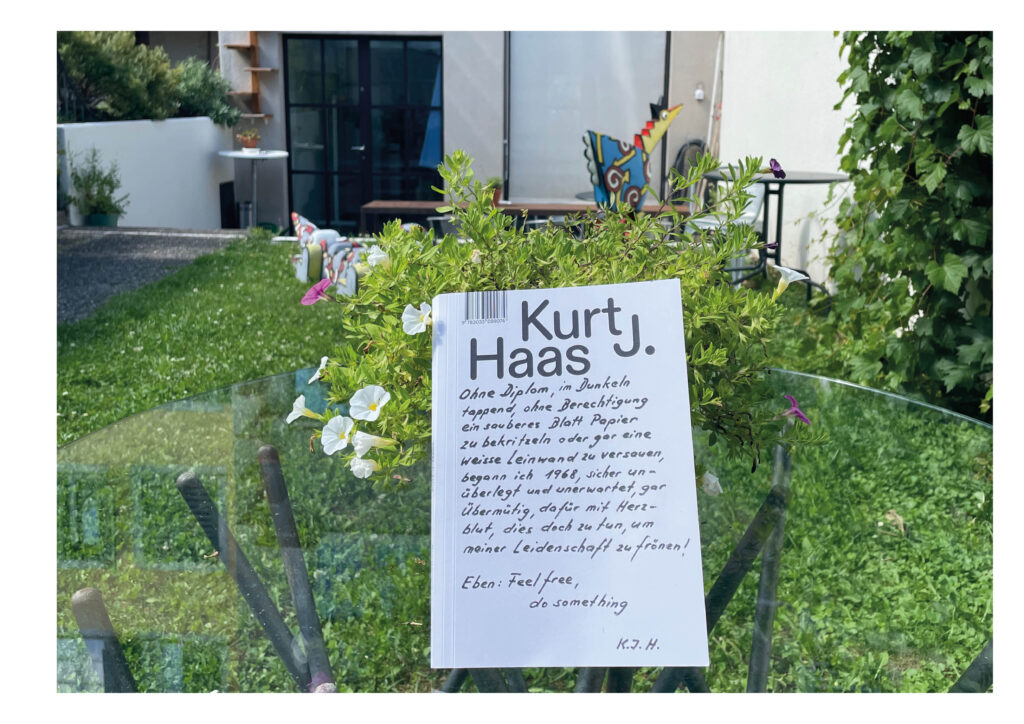 Kurt J.
Haas
Ohne Diplom, im Dunkeln
tappend, ohne Berechtigung
ein sauberes Blatt Papier
zu bekritzeln oder gar eine
weisse Leinwand zu versauen,
begann ich 1968, sicher un-
überlegt und unerwartet, gar
übermütig, dafür mit Herz-
blut, dies doch zu tun, um
meiner Leidenschaft zu frönen!
Eben: Feel free,
do something
K.J.H.